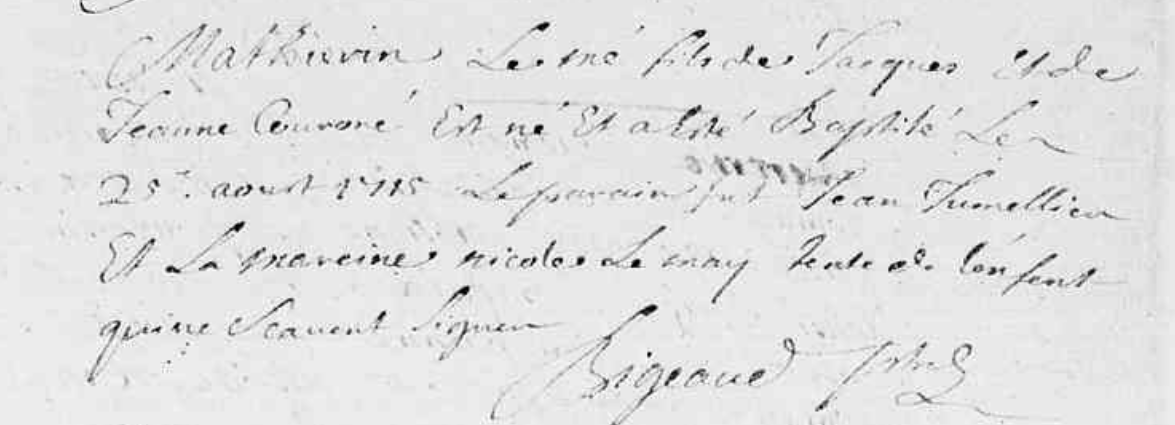 Mathurin Le mé fils de Jacques et de
Jeanne Couroné Est né Et a esté Baptisé Le
25e. aoust 1715 Le parain fut Jean Tumellier
Et La mareine nicole Le may tente de L'enfent
qui ne Scavent Signer
Bigeaud